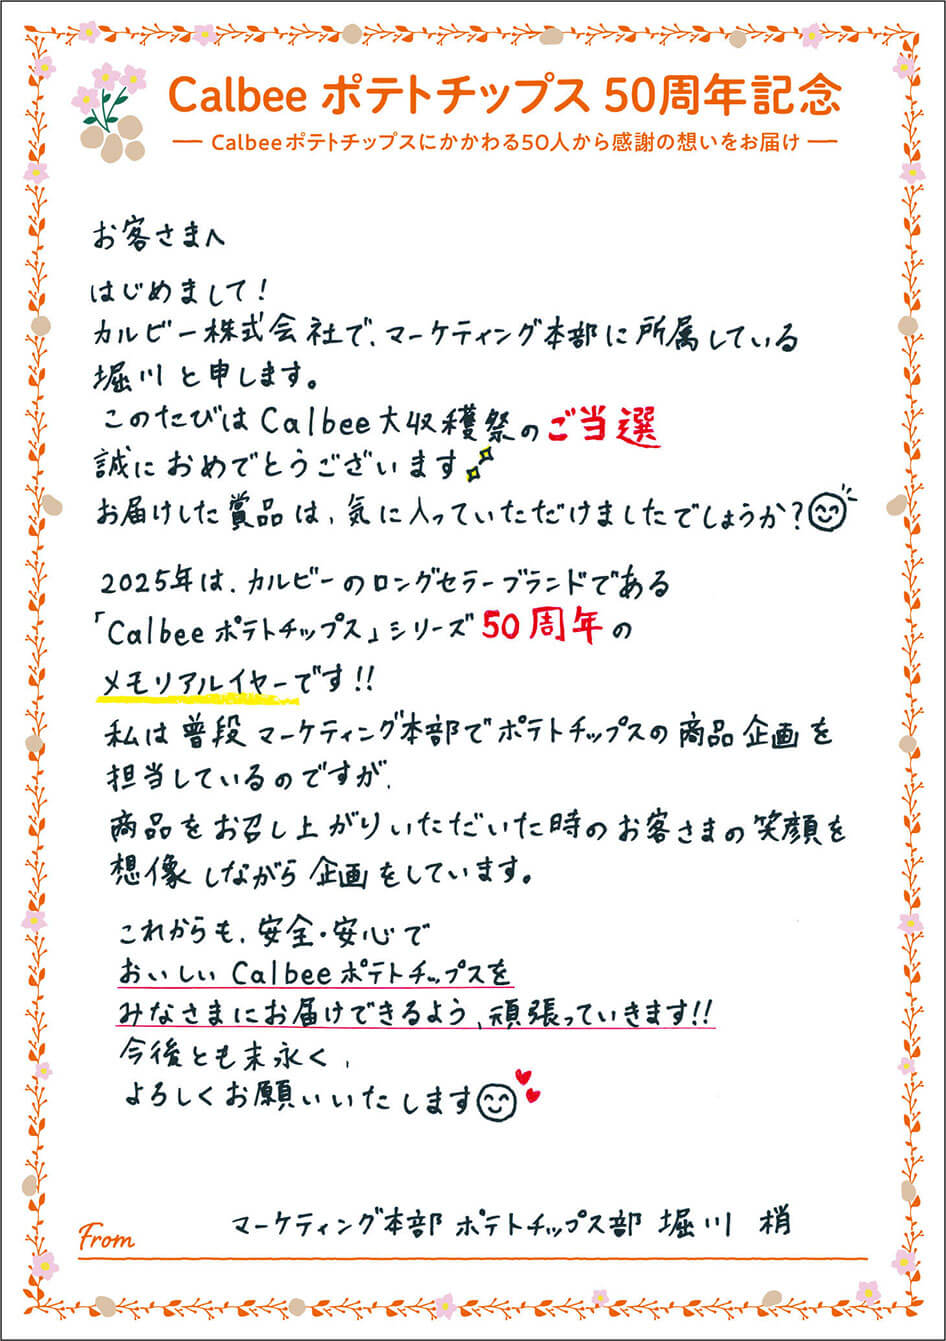 Calbee ポテトチップス 50周年記念
Calbeeポテトチップスにかかわる50人から感謝の想いをお届け
お客さまへ
はじめまして!
カルビー株式会社で、マーケティング本部に所属している
堀川と申します。
このたびはCalbee大収穫祭のご当選
誠におめでとうございます
お届けした賞品は、気に入っていただけましたでしょうか?
2025年は、カルビーのロングセラーブランドである
「Calbee ポテトチップス」シリーズ50周年の
メモリアルイヤーです!!
私は普段マーケティング本部でポテトチップスの商品企画を
担当しているのですが、
商品をお召し上がりいただいた時のお客さまの笑顔を
想像しながら企画をしています。
これからも、安全・安心で
おいしいCalbeeポテトチップスを
みなさまにお届けできるよう、頑張っていきます!!
今後とも末永く、
よろしくお願いいたします
From マーケティング本部 ポテトチップス部 堀川 梢